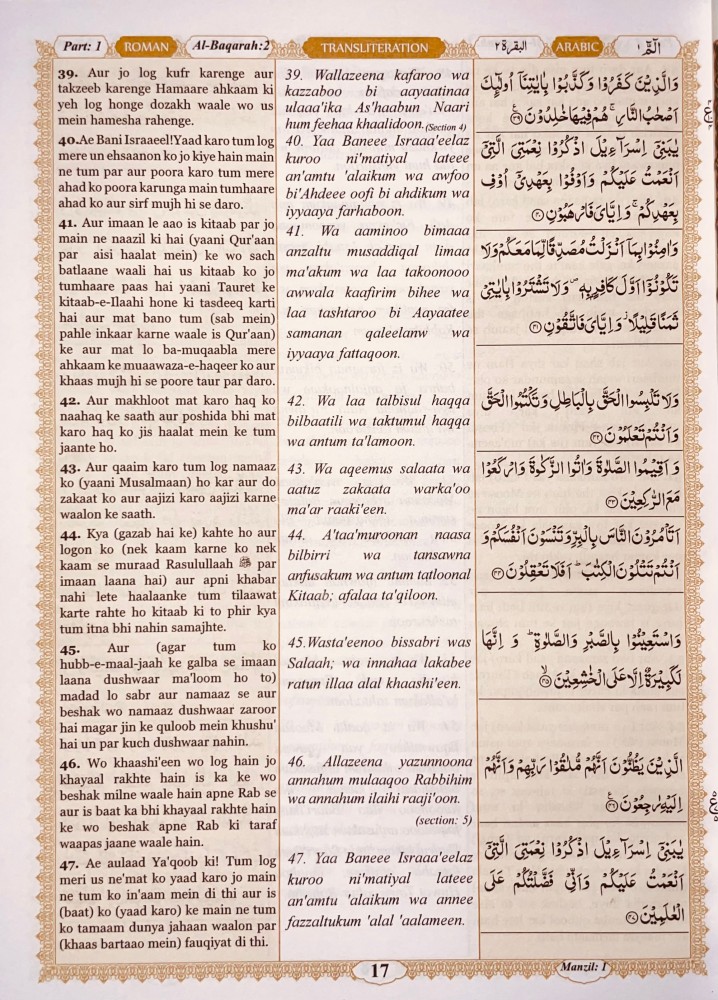 Part: 1
ROMAN
Al-Baqarah:2
TRANSLITERATION
البقرة ٢
ARABIC
الٓمّٓ ١
39. Aur jo log kufr karenge aur
takzeeb karenge Hamaare ahkaam ki
yeh log honge dozakh waale wo us
mein hamesha rahenge.
40.Ae Bani Israaeel!Yaad karo tum log
mere un ehsaanon ko jo kiye hain main
ne tum par aur poora karo tum mere
ahad ko poora karunga main tumhaare
ahad ko aur sirf mujh hi se daro.
41. Aur imaan le aao is kitaab par jo
main ne naazil ki hai (yaani Qur'aan
par aisi haalat mein) ke wo sach
batlaane waali hai us kitaab ko jo
tumhaare paas hai yaani Tauret ke
kitaab-e-Ilaahi hone ki tasdeeq karti
hai aur mat bano tum (sab mein)
pahle inkaar karne waale is Qur'aan)
ke aur mat lo ba-muqaabla mere
ahkaam ke muaawaza-e-haqeer ko aur
khaas mujh hi se poore taur par daro.
42. Aur makhloot mat karo haq ko
naahaq ke saath aur poshida bhi mat
karo haq ko jis haalat mein ke tum
jaante ho.
43. Aur qaaim karo tum log namaaz
ko (yaani Musalmaan) ho kar aur do
zakaat ko aur aajizi karo aajizi karne
waalon ke saath.
44. Kya (gazab hai ke) kahte ho aur
logon ko (nek kaam karne ko nek
kaam se muraad Rasulullaah ﷺ par
imaan laana hai) aur apni khabar
nahi lete haalaanke tum tilaawat
karte rahte ho kitaab ki to phir kya
tum itna bhi nahin samajhte.
45. Aur (agar tum ko
hubb-e-maal-jaah ke galba se imaan
laana dushwaar ma'loom ho to)
madad lo sabr aur namaaz se aur
beshak wo namaaz dushwaar zaroor
hai magar jin ke quloob mein khushu'
hai un par kuch dushwaar nahin.
46. Wo khaashi'een wo log hain jo
khayaal rakhte hain is ka ke wo
beshak milne waale hain apne Rab se
aur is baat ka bhi khayaal rakhte hain
ke wo beshak apne Rab ki taraf
waapas jaane waale hain.
47. Ae aulaad Ya'qoob ki! Tum log
meri us ne'mat ko yaad karo jo main
ne tum ko in'aam mein di thi aur is
(baat) ko (yaad karo) ke main ne tum
ko tamaam dunya jahaan waalon par
(khaas bartaao mein) fauqiyat di thi.
39. Wallazeena kafaroo wa
kazzaboo bi aayaatinaa
ulaaa'ika As'haabun Naari
hum feehaa khaalidoon. (Section 4)
40. Yaa Baneee Israaa'eelaz
kuroo ni'matiyal lateee
an'amtu 'alaikum wa awfoo
bi'Ahdeee oofi bi ahdikum wa
iyyaaya farhaboon.
41. Wa aaminoo bimaaa
anzaltu musaddiqal limaa
ma'akum wa laa takoonooo
awwala kaafirim bihee wa
laa tashtaroo bi Aayaatee
samanan qaleelanw wa
iyyaaya fattaqoon.
42. Wa laa talbisul haqqa
bilbaatili wa taktumul haqqa
wa antum ta'lamoon.
43. Wa aqeemus salaata wa
aatuz zakaata warka'oo
ma'ar raaki'een.
44. A'taa'muroonan naasa
bilbirri wa tansawna
anfusakum wa antum tatloonal
Kitaab; afalaa ta'qiloon.
45.Wasta'eenoo bissabri was
Salaah; wa innahaa lakabee
ratun illaa alal khaashi'een.
46. Allazeena yazunnoona
annahum mulaaqoo Rabbihim
wa annahum ilaihi raaji'oon.
(section: 5)
47. Yaa Baneee Israaa'eelaz
kuroo ni'matiyal lateee
an'amtu 'alaikum wa annee
fazzaltukum 'alal 'aalameen.
وَالَّذِيْنَ كَفَرُوْا وَكَذَّبُوْا بِاٰيٰتِنَآ اُولٰٓئِكَ
اَصْحٰبُ النَّارِ ۚ هُمْ فِيْهَا خٰلِدُوْنَ ۝٣٩
يٰبَنِيْٓ اِسْرَآءِيْلَ اذْكُرُوْا نِعْمَتِيَ الَّتِيْٓ
اَنْعَمْتُ عَلَيْكُمْ وَاَوْفُوْا بِعَهْدِيْٓ اُوْفِ
بِعَهْدِكُمْ ۚ وَاِيَّايَ فَارْهَبُوْنِ ۝٤٠
وَاٰمِنُوْا بِمَآ اَنْزَلْتُ مُصَدِّقًا لِّمَا مَعَكُمْ وَلَا
تَكُوْنُوْٓا اَوَّلَ كَافِرٍۭ بِهٖ ۪ وَلَا تَشْتَرُوْا بِاٰيٰتِيْ
ثَمَنًا قَلِيْلًا ۡ وَّاِيَّايَ فَاتَّقُوْنِ ۝٤١
وَلَا تَلْبِسُوا الْحَقَّ بِالْبَاطِلِ وَتَكْتُمُوا الْحَقَّ
وَاَنْتُمْ تَعْلَمُوْنَ ۝٤٢
وَاَقِيْمُوا الصَّلٰوةَ وَاٰتُوا الزَّكٰوةَ وَارْكَعُوْا
مَعَ الرّٰكِعِيْنَ ۝٤٣
اَتَاْمُرُوْنَ النَّاسَ بِالْبِرِّ وَتَنْسَوْنَ اَنْفُسَكُمْ وَ
اَنْتُمْ تَتْلُوْنَ الْكِتٰبَ ؕ اَفَلَا تَعْقِلُوْنَ ۝٤٤
وَاسْتَعِيْنُوْا بِالصَّبْرِ وَالصَّلٰوةِ ؕ وَ اِنَّهَا
لَكَبِيْرَةٌ اِلَّا عَلَى الْخٰشِعِيْنَ ۝٤٥
الَّذِيْنَ يَظُنُّوْنَ اَنَّهُمْ مُّلٰقُوْا رَبِّهِمْ وَاَنَّهُمْ
اِلَيْهِ رٰجِعُوْنَ ۝٤٦
يٰبَنِيْٓ اِسْرَآءِيْلَ اذْكُرُوْا نِعْمَتِيَ الَّتِيْٓ
اَنْعَمْتُ عَلَيْكُمْ وَاَنِّيْ فَضَّلْتُكُمْ عَلَى
الْعٰلَمِيْنَ ۝٤٧
17
Manzil: 1